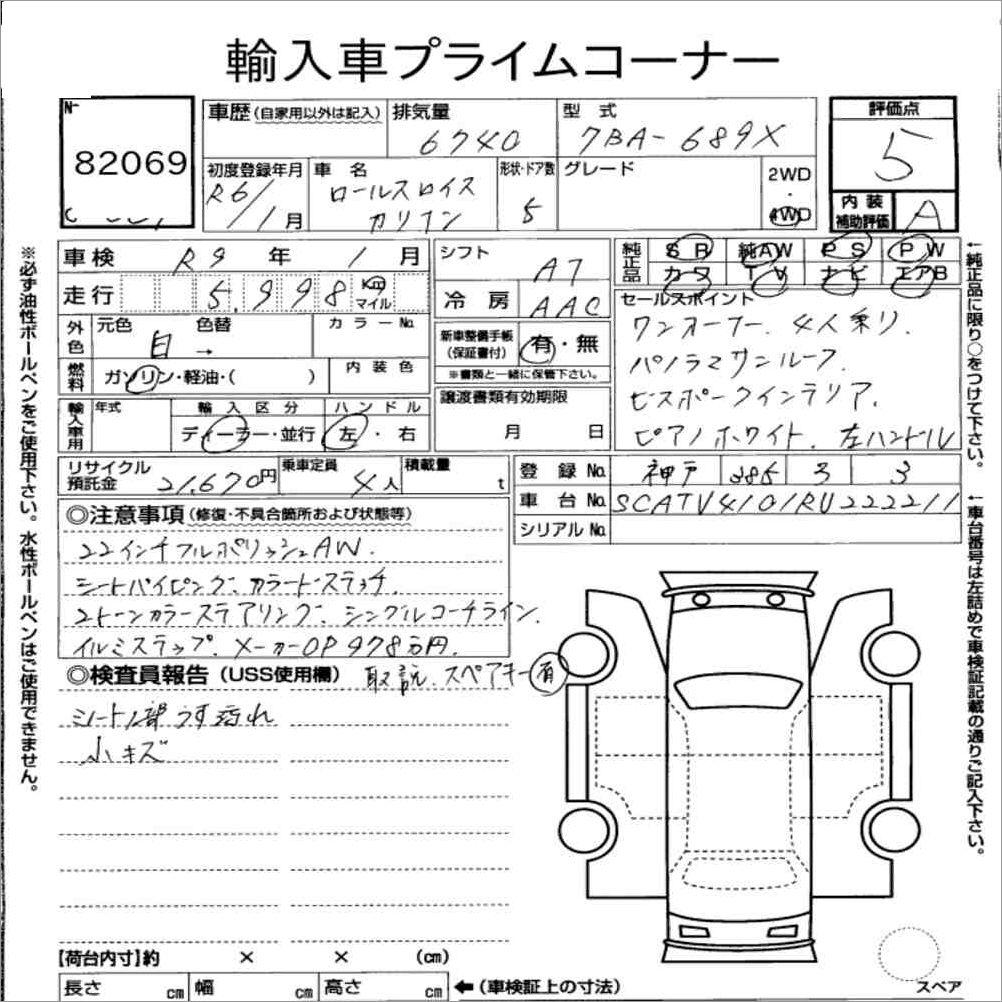 輸入車プライムコーナー
82069
車歴(自家用以外は記入)
排気量
6740
型式
7BA-689X
評価点
5
初度登録年月
R6/1月
車名
ロールスロイス
カリナン
形状・ドア数
5
グレード
2WD
・
4WD
内装
補助評価
A
車検 R9年 1月
シフト
AT
純正品
SR 純AW PS PW
カーワ TV ナビ エアB
走行 5,998 Km マイル
冷房 AAC
セールスポイント
ワンオーナー. 4人乗り.
パノラマサンルーフ.
ビスポークインテリア.
ピアノホワイト. 左ハンドル
外色
元色 色替
白 →
カラーNo.
新車整備手帳
(保証書付)
有・無
※書類と一緒に保管下さい。
燃料
ガソリン・軽油・( )
内装色
譲渡書類有効期限
月 日
輸入車用
年式
輸入区分
ディーラー・並行
ハンドル
左・右
リサイクル
預託金
21,670円
乗車定員
4人
積載量
t
登録No. 神戸 385 ミ 3
車台No. SCATV4101RU222211
シリアルNo.
◎注意事項(修復・不具合箇所および状態等)
22インチフルポリッシュAW.
シートパイピング. カラードステッチ.
2トーンカラーステアリング. シングルコーチライン.
イルミステップ. メーカーOP978万円.
◎検査員報告(USS使用欄) 取説. スペアキー有
シート1部うす汚れ
小キズ
【荷台内寸】約 × × (cm)
長さ cm 幅 cm 高さ cm ←(車検証上の寸法)
スペア
※必ず油性ボールペンをご使用下さい。水性ボールペンはご使用できません。
←純正品に限り○をつけて下さい。
←車台番号は左詰めで車検証記載の通りご記入下さい。